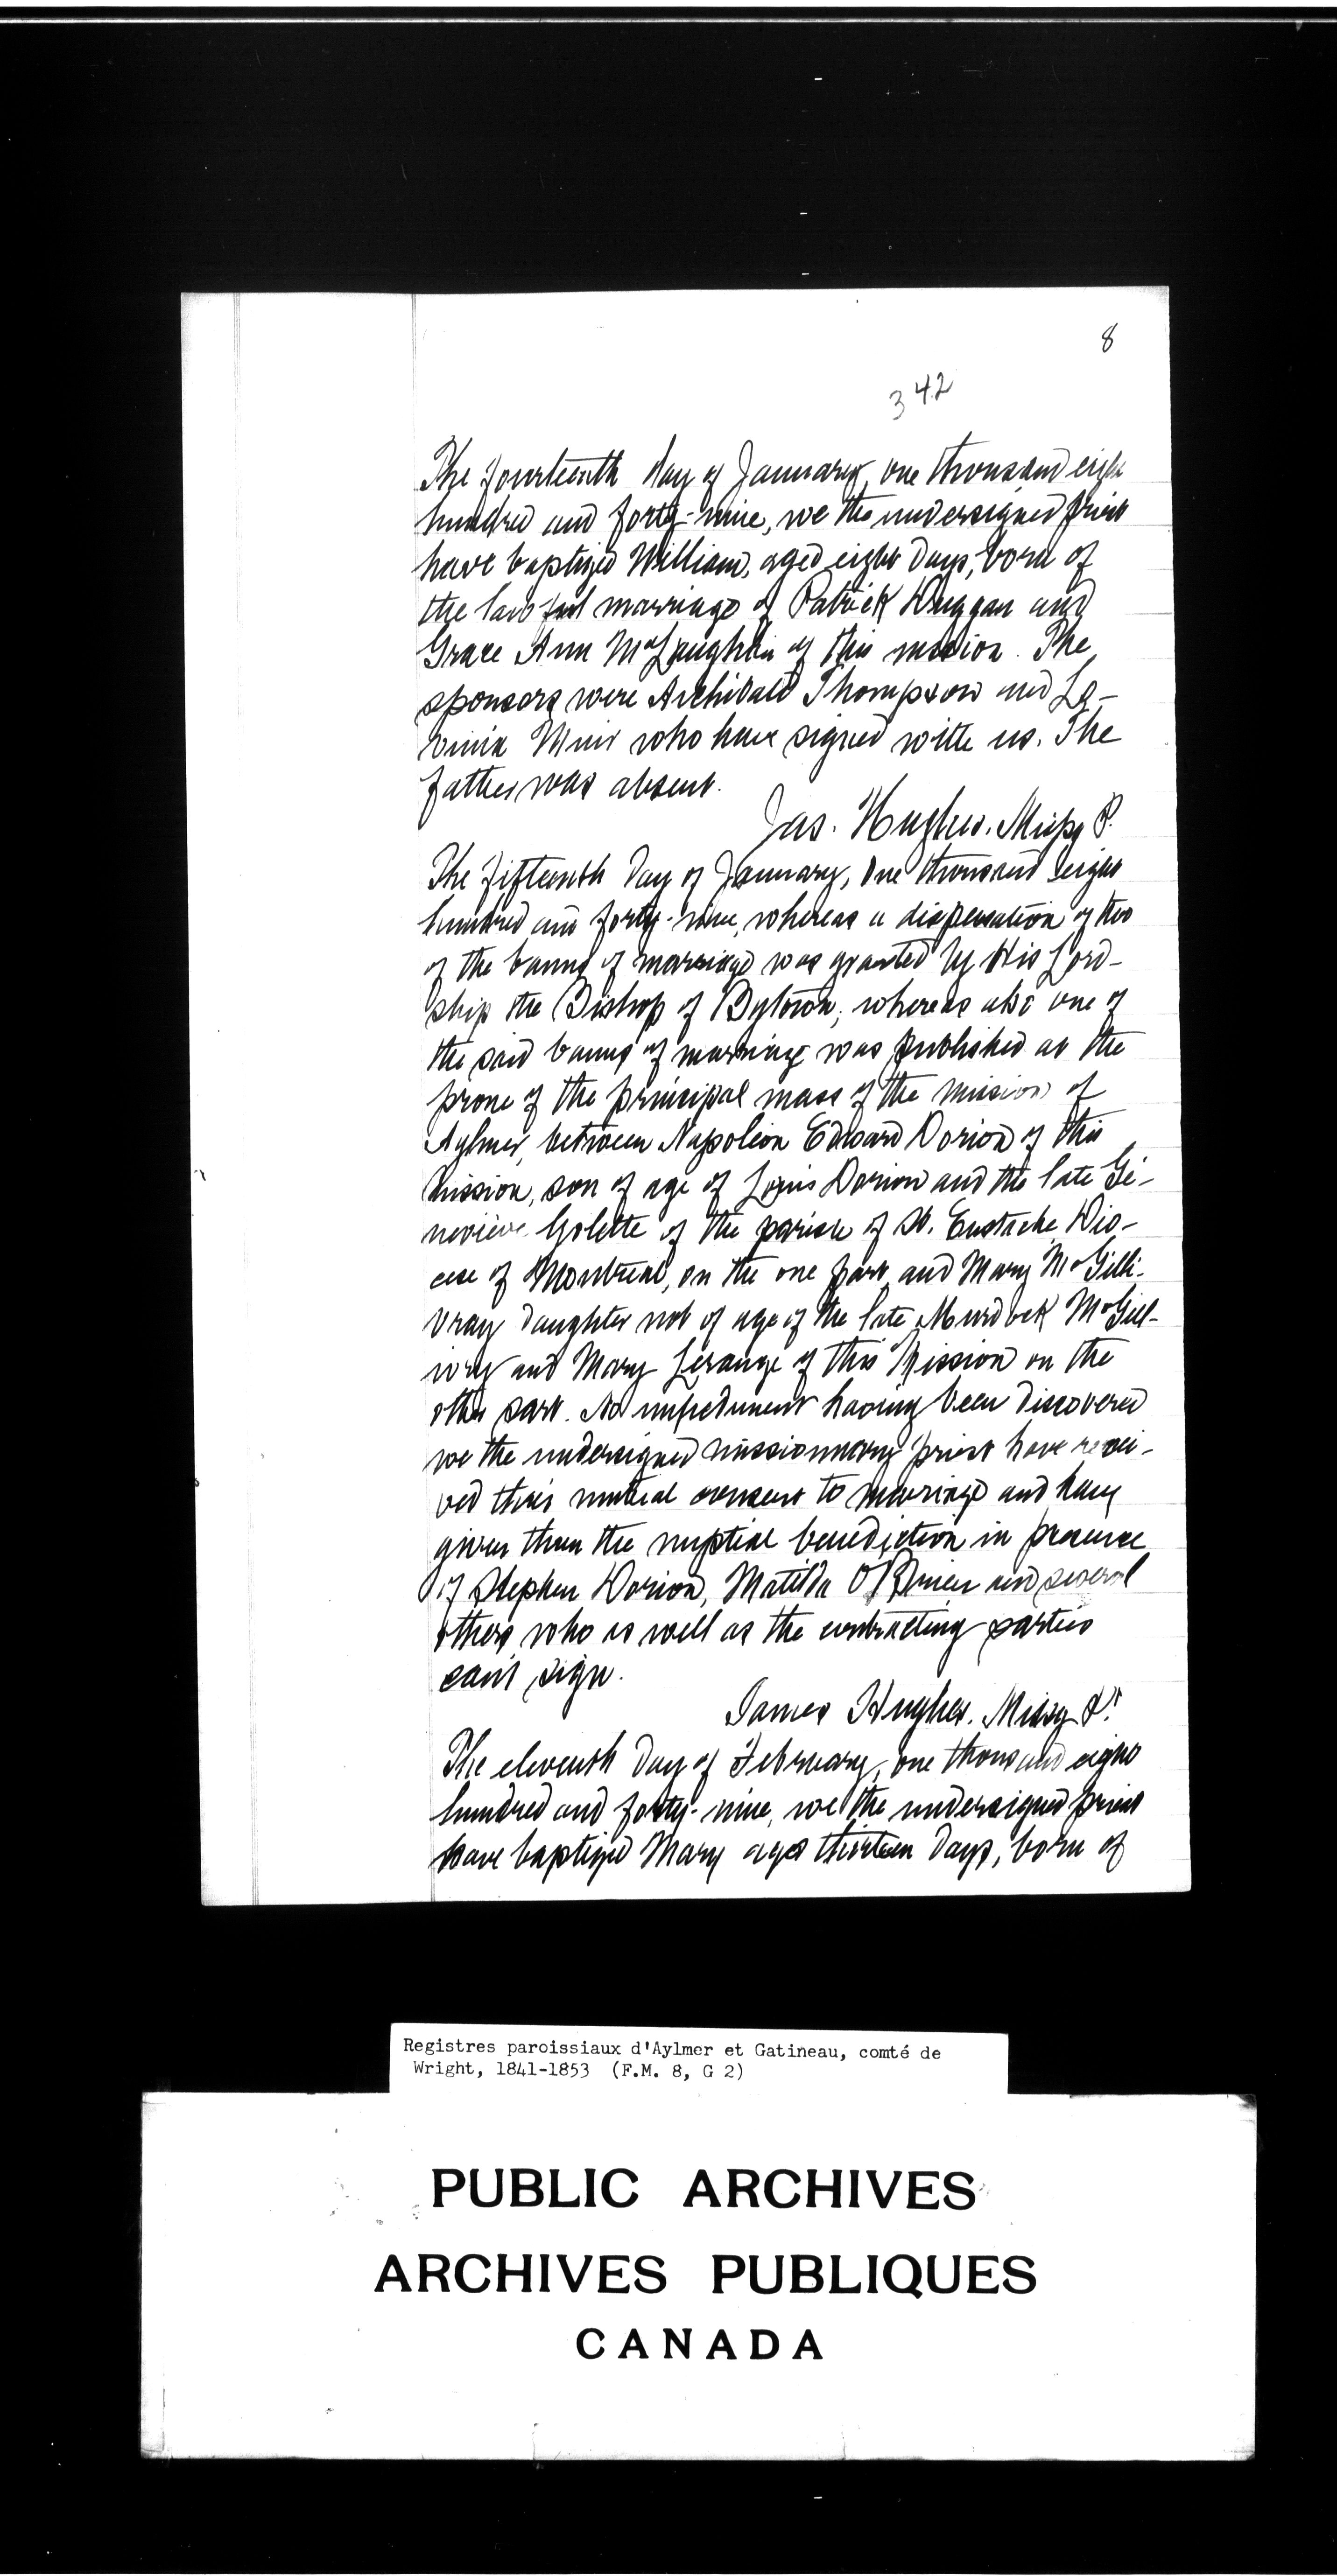 8
342
The fourteenth day of January, one thousand eight
hundred and forty-nine, we the undersigned priest
have baptized William, aged eight days, born of
the lawful marriage of Patrick Duggan and
Grace Ann McLaughlin of this mission. The
sponsors were Archibald Thompson and La-
vinia Muir who have signed with us. The
father was absent.
Jas. Hughes. Missy P.
The fifteenth day of January, one thousand eight
hundred and forty-nine, whereas a dispensation of two
of the banns of marriage was granted by His Lord-
ship the Bishop of Bytown; whereas also one of
the said banns of marriage was published at the
prone of the principal mass of the mission of
Aylmer, between Napoleon Edward Dorion of this
mission, son of age of Louis Dorion and the late Ge-
nevieve Golette of the parish of St. Eustache Dio-
cese of Montreal, on the one part, and Mary McGilli-
vray daughter not of age of the late Murdock McGill-
ivry and Mary Lerange of this Mission on the
other part. No impediment having been discovered
we the undersigned missionnary priest have recei-
ved their mutual consent to marriage and have
given them the nuptial benediction in presence
of Stephen Dorion, Matilda O'Brien and several
others who as well as the contracting parties
can't sign.
James Hughes. Missy Pt.
The eleventh day of February, one thousand eight
hundred and forty-nine, we the undersigned priest
have baptized Mary aged thirteen days, born of
Registres paroissiaux d'Aylmer et Gatineau, comté de
Wright, 1841-1853 (F.M. 8, G 2)
PUBLIC ARCHIVES
ARCHIVES PUBLIQUES
CANADA